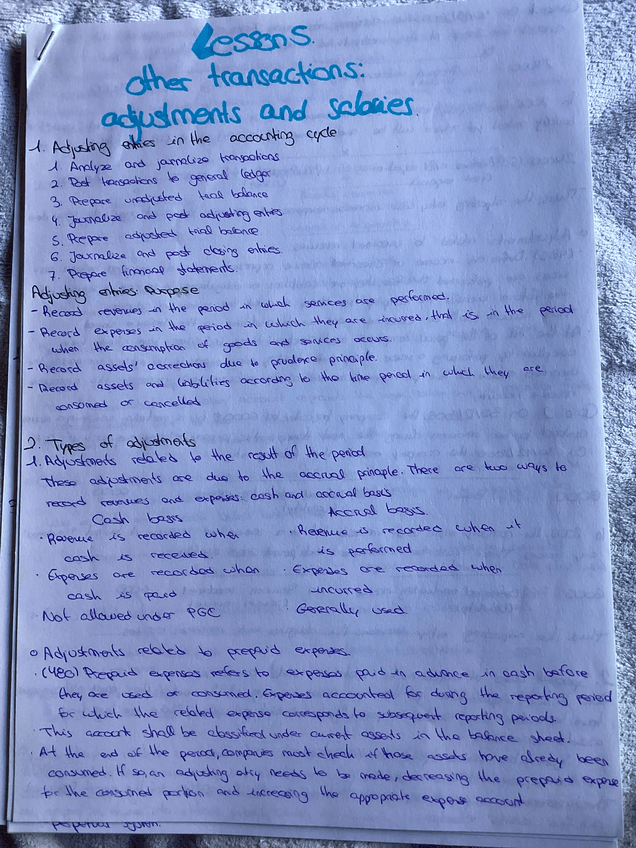 Lesson 5.
Other transactions:
adjustments and salaries.
1. Adjusting entries in the accounting cycle
1. Analyze and journalize transactions
2. Post transactions to general ledger
3. Prepare unadjusted trial balance
4. Journalize and post adjusting entries
5. Prepare adjusted trial balance
6. Journalize and post closing entries
7. Prepare financial statements.
Adjusting entries: Purpose
- Record revenues in the period in which services are performed.
- Record expenses in the period in which they are incurred, that is in the period
when the consumption of goods and services occurs.
- Record assets' correction due to prudence principle.
- Record assets and liabilities according to the time period in which they are
consumed or cancelled
2. Types of adjustments
1. Adjustments related to the result of the period
These adjustments are due to the accrual principle. There are two ways to
record revenues and expenses: cash and accrual basis
Cash basis Accrual basis.
· Revenue is recorded when · Revenue is recorded when it
cash is received is performed
· Expenses are recorded when · Expenses are recorded when
cash is paid incurred
· Not allowed under PGC · Generally used
o Adjustments related to prepaid expenses.
· (480) Prepaid expenses refers to expenses paid in advance in cash before
they are used or consumed. Expenses accounted for during the reporting period
for which the related expense corresponds to subsequent reporting periods.
· This account shall be classified under current assets in the balance sheet.
· At the end of the period, companies must check if those assets have already been
consumed. If so, an adjusting entry needs to be made, decreasing the prepaid expense
for the consumed portion and increasing the appropriate expense account
perpetual system.